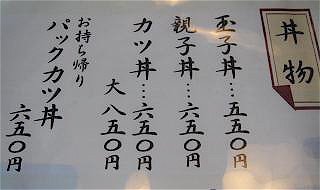 丼物
玉子丼…五五〇円
親子丼…六五〇円
カツ丼…六五〇円
大 八五〇円
お持ち帰り
パックカツ丼
六五〇円